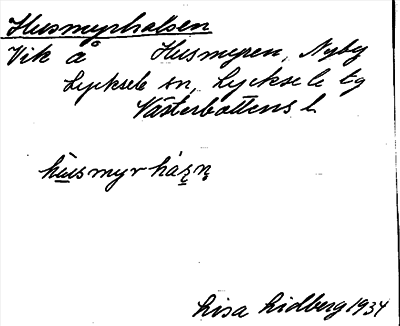 Husmyrhalsen
Vik å Husmyren, Nyby
Lycksele sn, Lycksele tg
Västerbottens l
hùsmyrhásn
Lisa Lidberg 1934